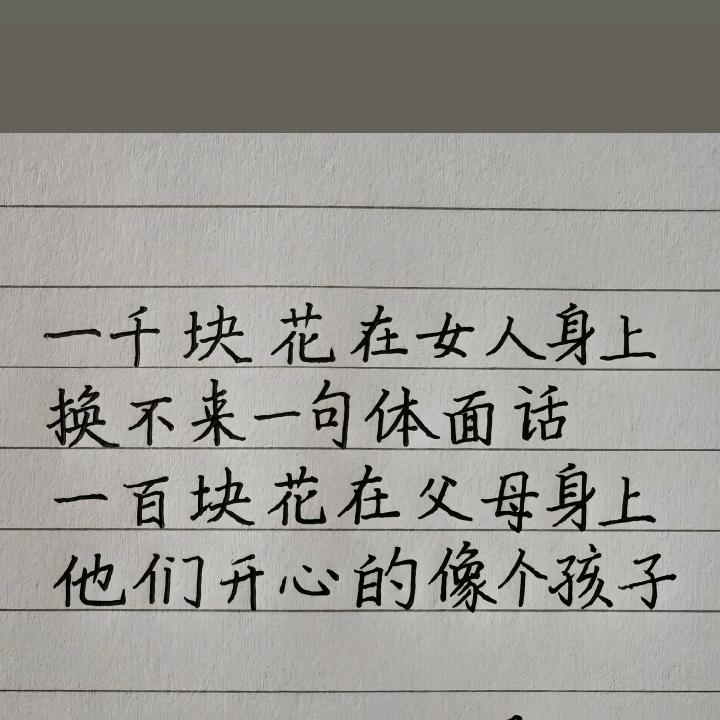 一千块花在女人身上
换不来一句体面话
一百块花在父母身上
他们开心的像个孩子